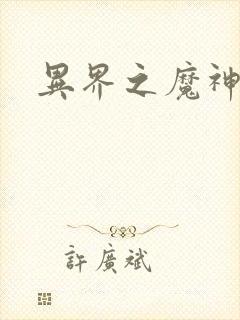 異界之魔神
許廣斌